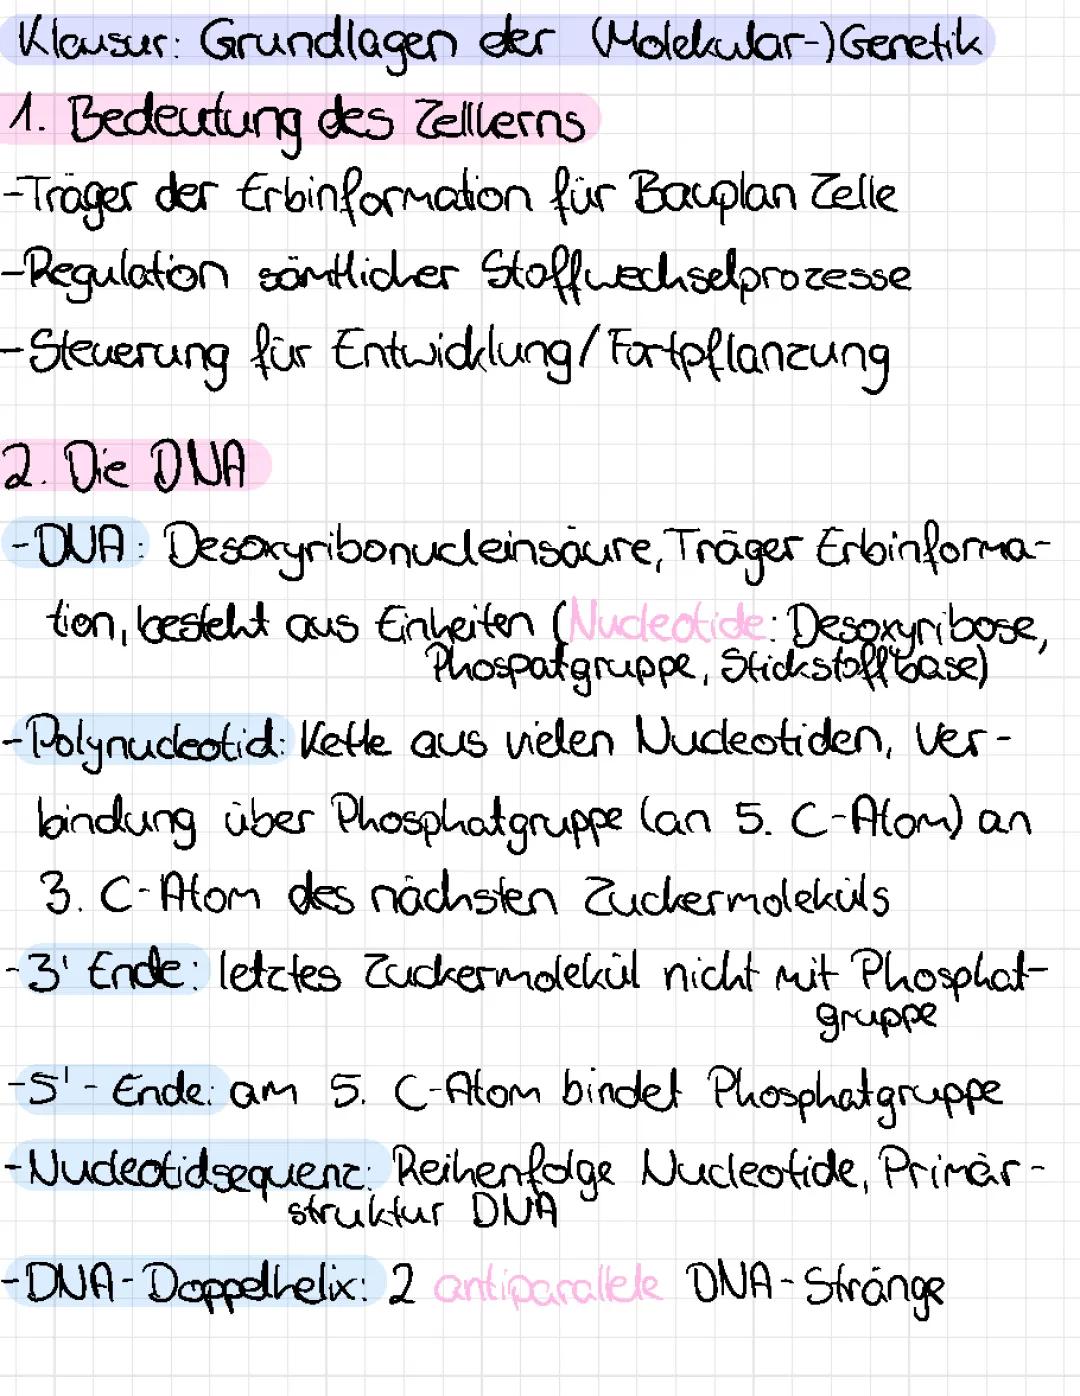 Klausur: Grundlagen der (Molekular-)Genetik
1. Bedeutung des Zellkerns
-Träger der Erbinformation für Bauplan Zelle
-Regulation sämtlicher Stoffwechselprozesse
-Steuerung für Entwicklung/Fortpflanzung
2. Die DNA
-DNA: Desoxyribonucleinsäure, Träger Erbinforma-
tion, besteht aus Einheiten (Nucleotide: Desoxyribose,
Phospatgruppe, Stickstoffbase)
-Polynucleotid: Kette aus vielen Nucleotiden, Ver-
bindung über Phosphatgruppe (an 5. C-Atom) an
3. C-Atom des nächsten Zuckermoleküls
-3' Ende: letztes Zuckermolekül nicht mit Phosphat-
gruppe
-5'-Ende: am 5. C-Atom bindet Phosphatgruppe
-Nucleotidsequenz: Reihenfolge Nucleotide, Primär-
struktur DNA
-DNA-Doppelhelix: 2 antiparallele DNA-Stränge